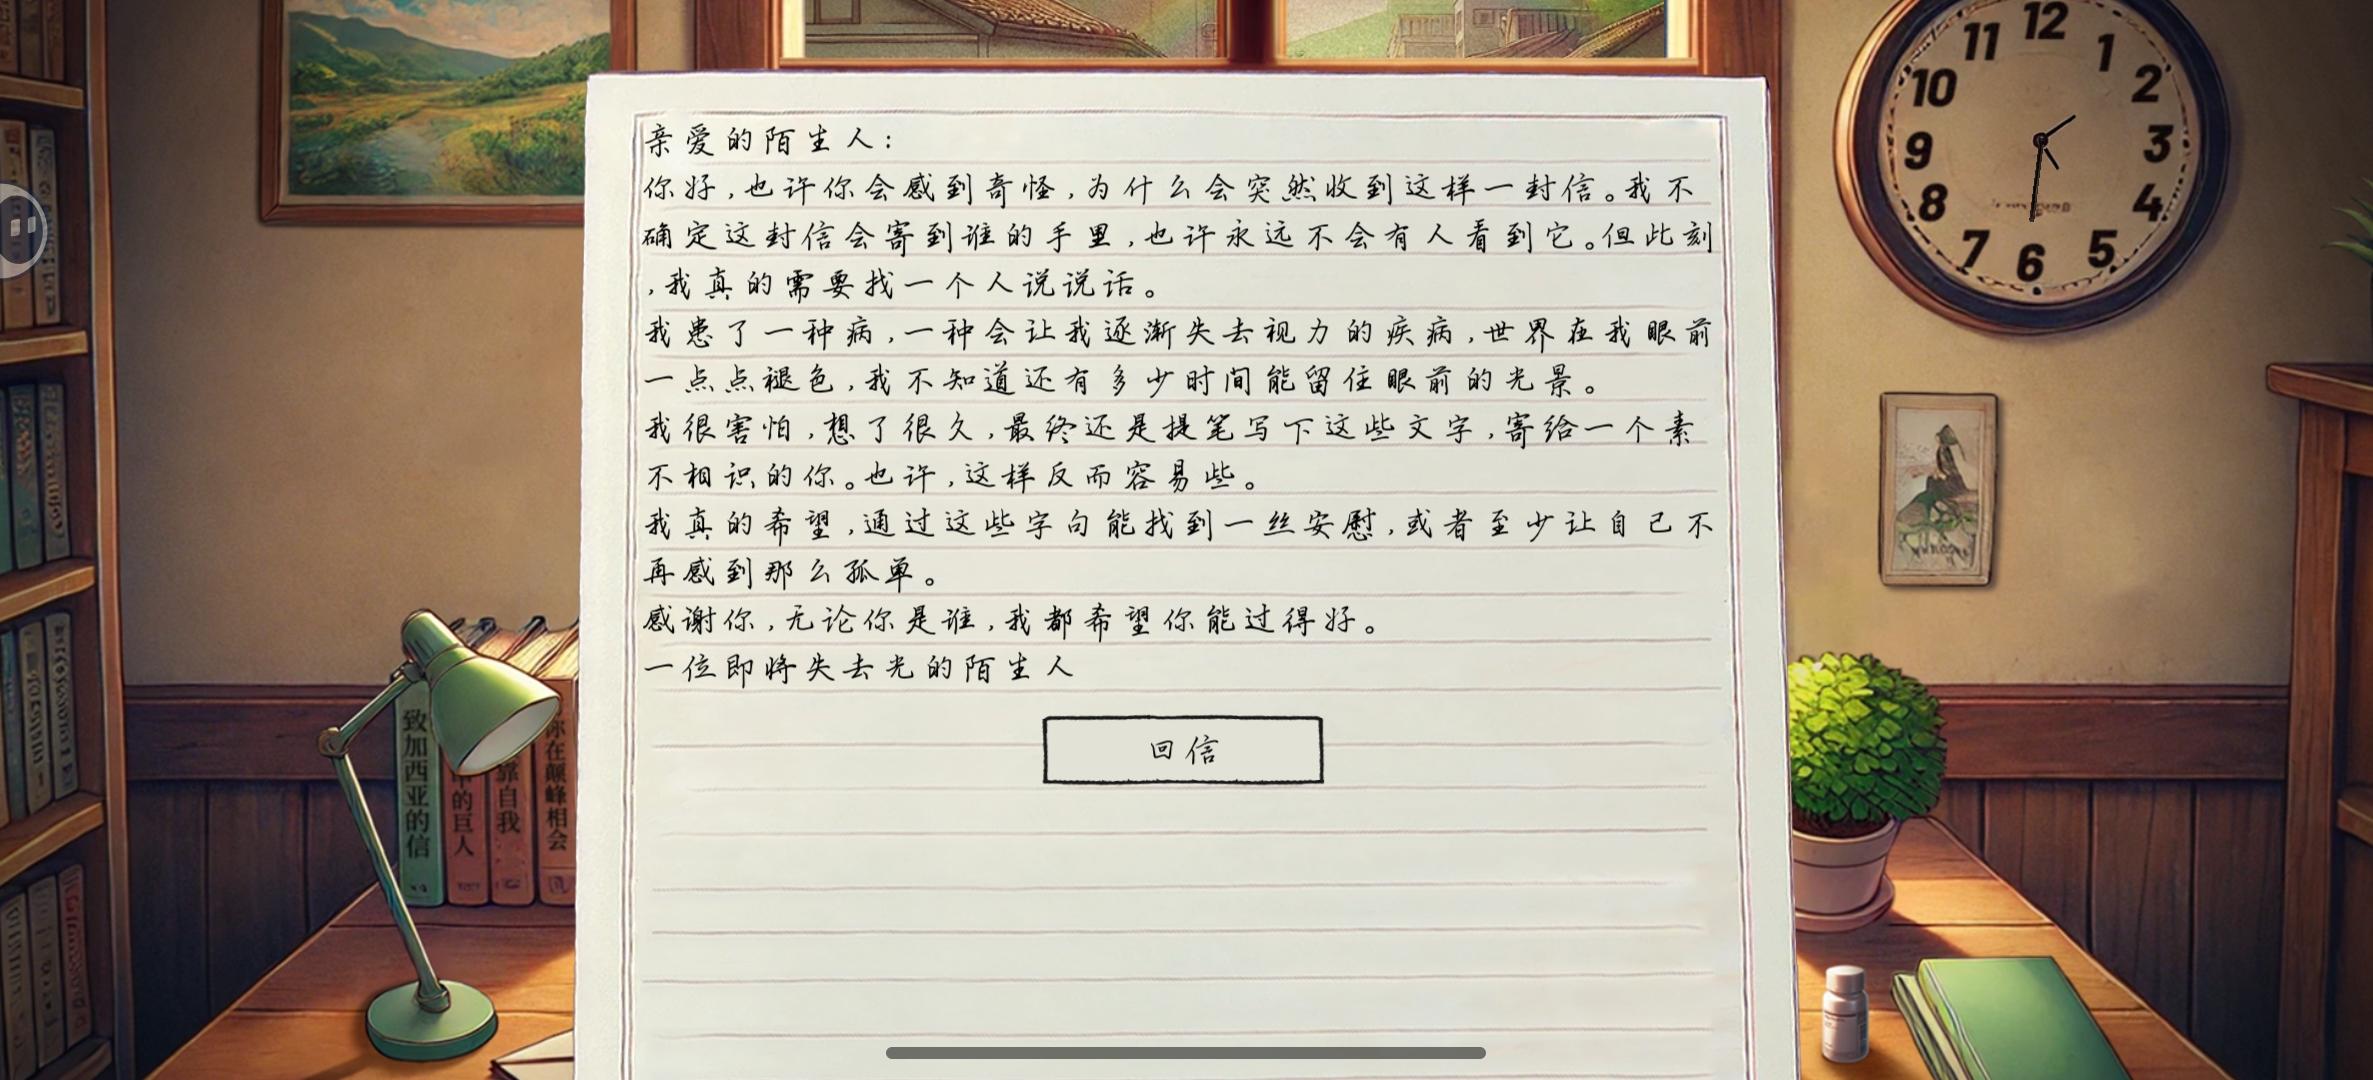 亲爱的陌生人：
你好，也许你会感到奇怪，为什么会突然收到这样一封信。我不
确定这封信会寄到谁的手里，也许永远不会有人看到它。但此刻
，我真的需要找一个人说说话。
我患了一种病，一种会让我逐渐失去视力的疾病，世界在我眼前
一点点褪色，我不知道还有多少时间能留住眼前的光景。
我很害怕，想了很久，最终还是提笔写下这些文字，寄给一个素
不相识的你。也许，这样反而容易些。
我真的希望，通过这些字句能找到一丝安慰，或者至少让自己不
再感到那么孤单。
感谢你，无论你是谁，我都希望你能过得好。
一位即将失去光的陌生人
回信
致加西亚的信
中的巨人
靠自我
你在颠峰相会
12
1
2
3
4
5
6
7
8
9
10
11